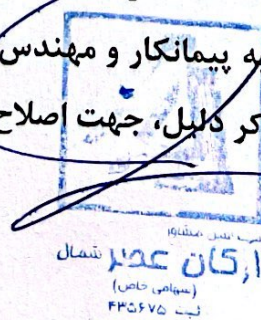 به پیمانکار و مهندس
کر دلیل، جهت اصلاح
مشاور
ارکان عصر شمال
(سهامی خاص)
ثبت ۴۳۵۶۷۵